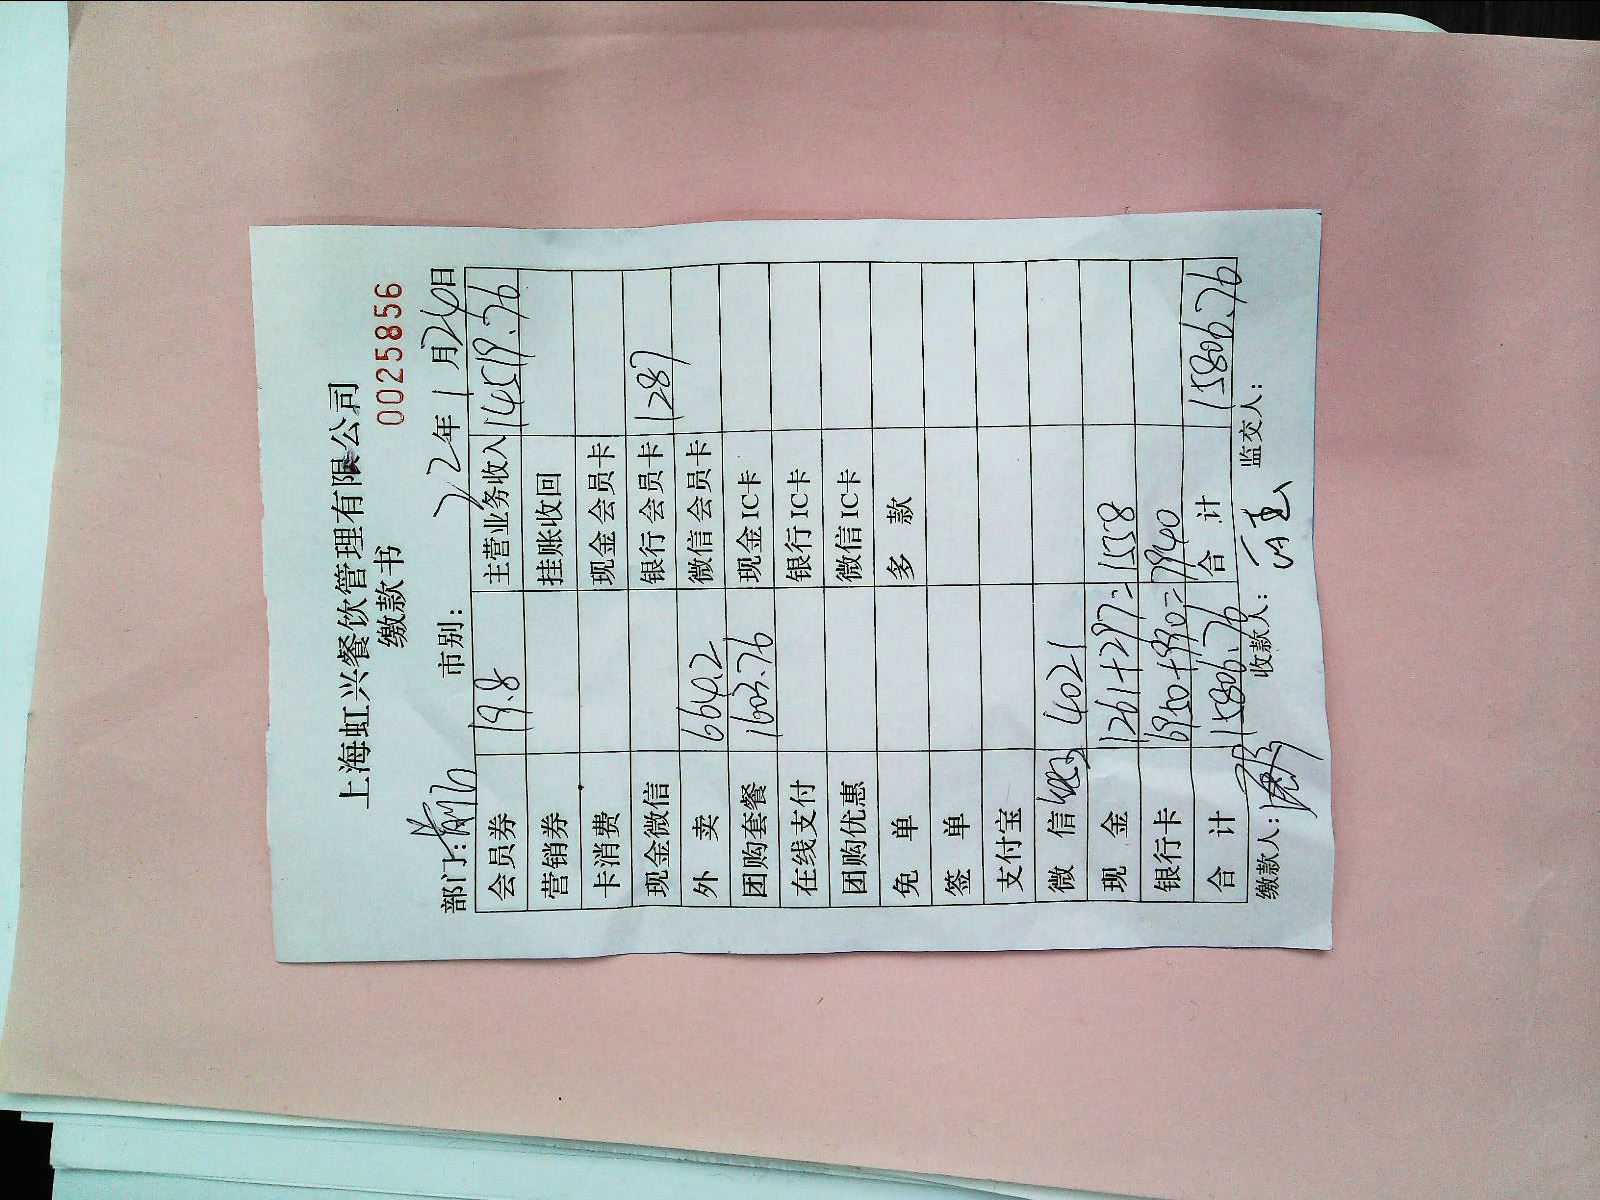 上海虹兴餐饮管理有限公司
缴款书 0025856
部门: 市别: 22年1月26日
会员券 19.8 主营业务收入 14519.76
营销券 挂账收回
卡消费 现金会员卡
现金微信 银行会员卡 1287
外卖 664.2 微信会员卡
团购套餐 1603.76 现金IC卡
在线支付 银行IC卡
团购优惠 微信IC卡
免单 多款
签单
支付宝
微信 4021
现金 1261+297=1558
银行卡 6950+990=7940
合计 15806.76 合计 15806.76
缴款人: 收款人: 监交人: